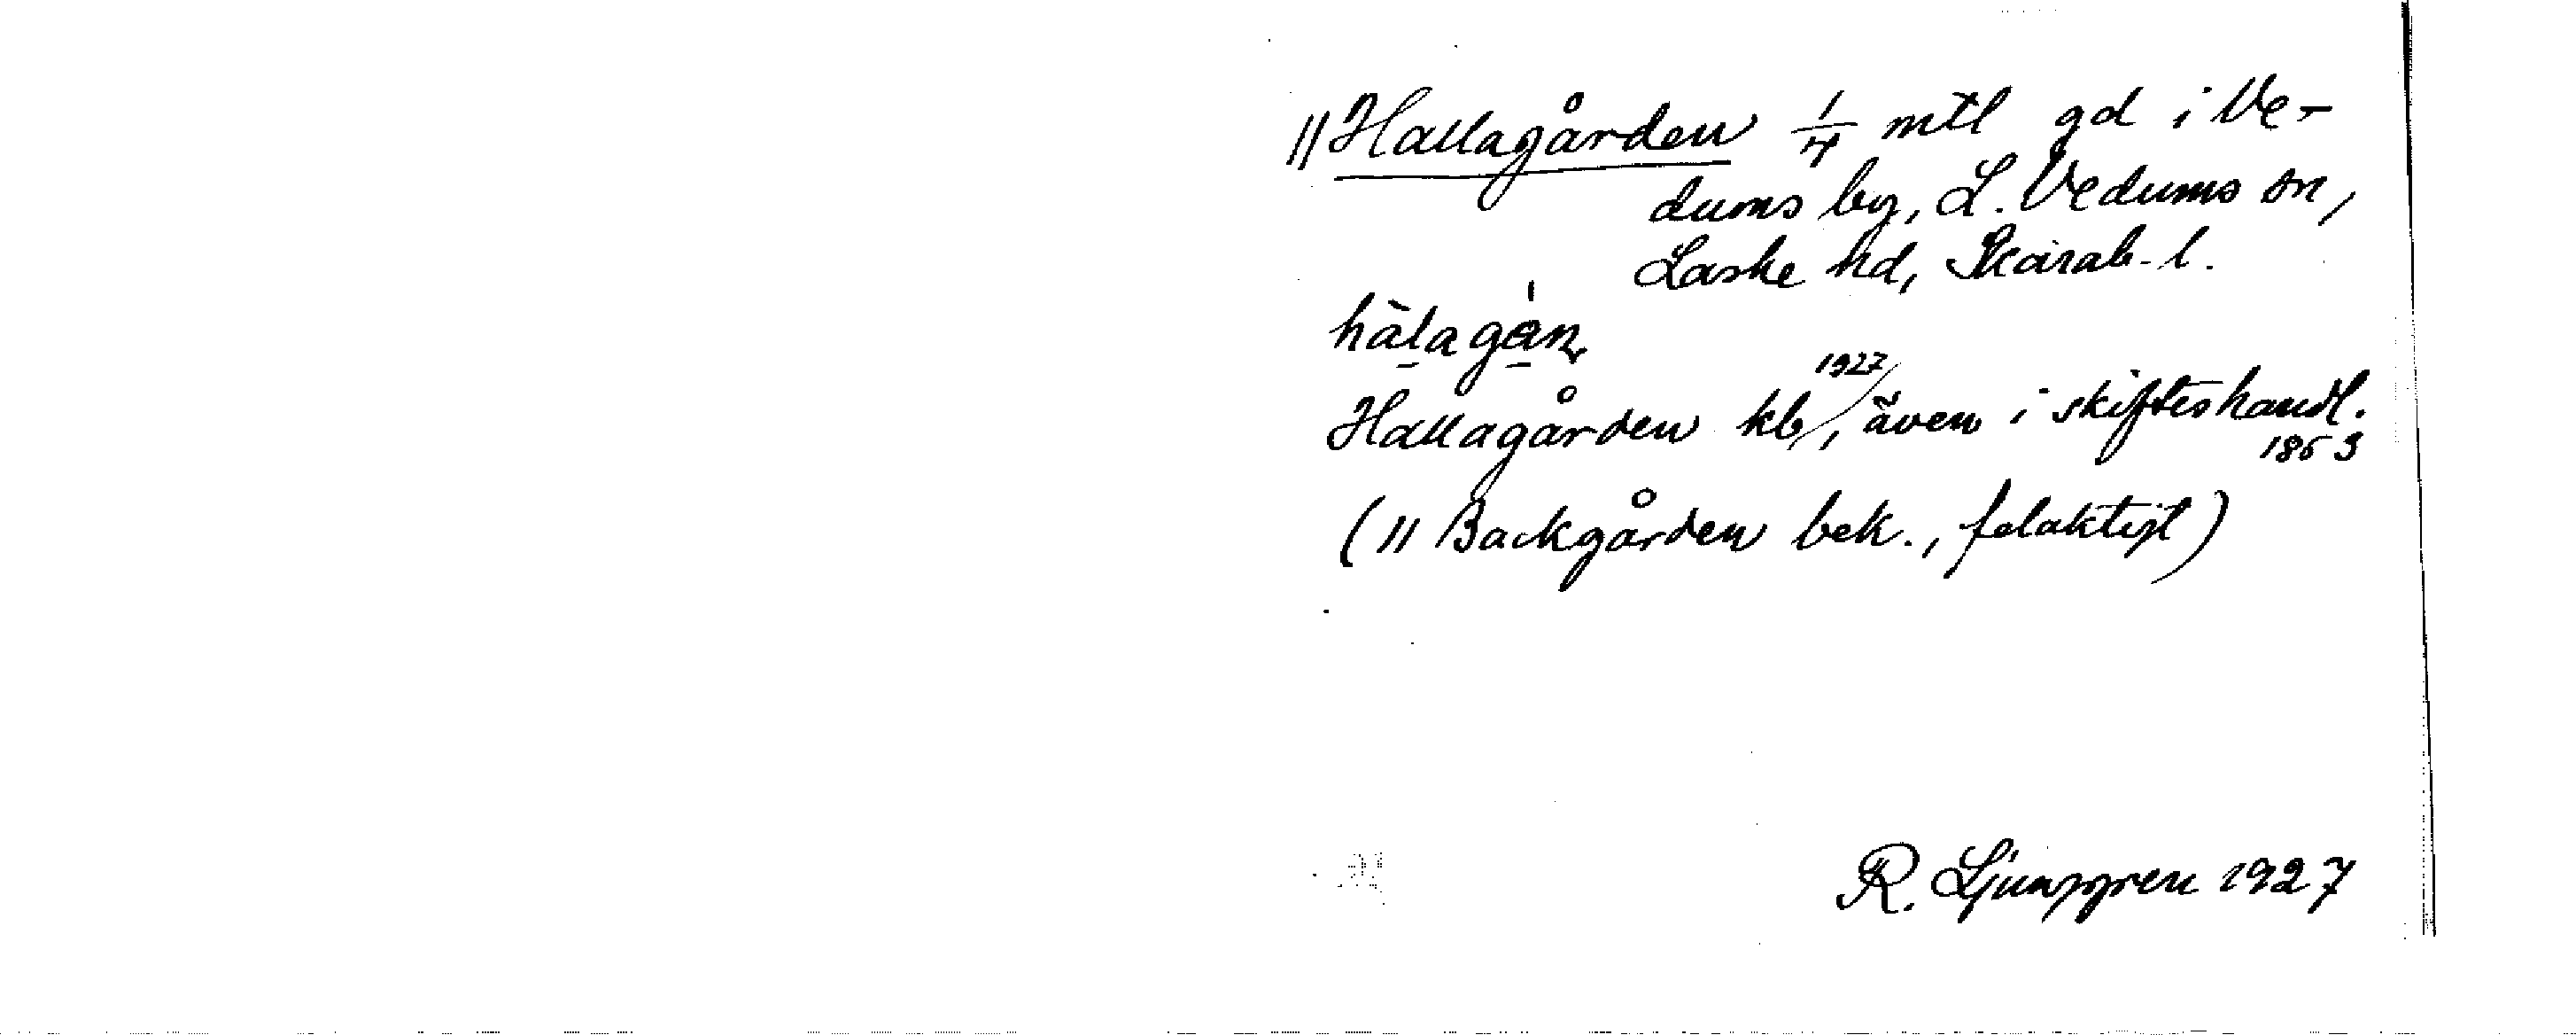 // Hallagården 1/4 mtl gd i Ve-
dums by, L. Vedums sn,
Laske hd, Skarab. l.
hàlagá̀n
Hallagården kb 1927, även i skifteshandl.
1863
(// Backgården bek., felaktigt)
R. Ljunggren 1927